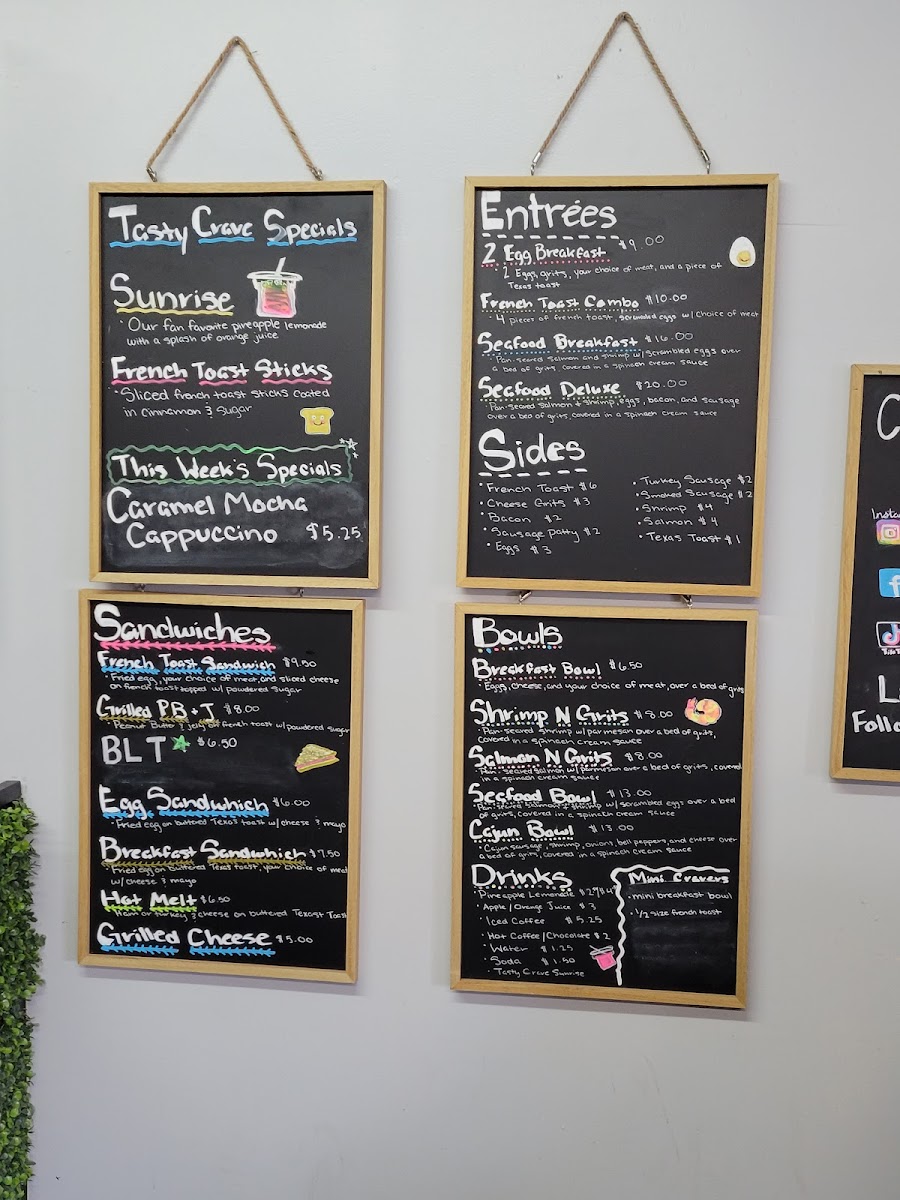 Tasty Crave Specials
Sunrise
· Our fan favorite pineapple lemonade
with a splash of orange juice
French Toast Sticks
· Sliced french toast sticks coated
in cinnamon & sugar
This Week's Specials
Caramel Mocha
Cappuccino $5.25
Sandwiches
French Toast Sandwich $9.50
· Fried egg, your choice of meat, and sliced cheese
on french toast topped w/ powdered sugar
Grilled PB + J $8.00
· Peanut Butter & jelly on french toast w/ powdered sugar
BLT $6.50
Egg Sandwhich $6.00
· Fried egg on buttered Texas toast w/ cheese & mayo
Breakfast Sandwhich $7.50
· Fried egg on buttered Texas toast, your choice of meat
w/ cheese & mayo
Hot Melt $6.50
· Ham or turkey & cheese on buttered Texast Toast
Grilled Cheese $5.00
Entrées
2 Egg Breakfast $9.00
· 2 Eggs, grits, your choice of meat, and a piece of
Texas toast
French Toast Combo $10.00
· 4 pieces of french toast, scrambled eggs w/ choice of meat
Seafood Breakfast $16.00
· Pan-seared salmon and shrimp w/ scrambled eggs over
a bed of grits covered in a spinach cream sauce
Seafood Deluxe $20.00
· Pan-seared salmon + shrimp, eggs, bacon, and sausage
over a bed of grits, covered in a spinach cream sauce
Sides
· French Toast $6
· Cheese Grits $3
· Bacon $2
· Sausage patty $2
· Eggs $3
· Turkey Sausage $2
· Smoked Sausage $2
· Shrimp $4
· Salmon $4
· Texas Toast $1
Bowls
Breakfast Bowl $6.50
· Eggs, cheese, and your choice of meat, over a bed of grits
Shrimp N Grits $8.00
· Pan-seared shrimp w/ parmesan over a bed of grits,
covered in a spinach cream sauce
Salmon N Grits $8.00
· Pan-seared salmon w/ parmesan over a bed of grits, covered
in a spinach cream sauce
Seafood Bowl $13.00
· Pan-seared salmon & shrimp w/ scrambled eggs over a bed
of grits, covered in a spinach cream sauce
Cajun Bowl $13.00
· Cajun sausage, shrimp, onions, bell peppers, and cheese over
a bed of grits, covered in a spinach cream sauce
Drinks
· Pineapple Lemonade
· Apple/Orange Juice $3
· Iced Coffee $5.25
· Hot Coffee/Chocolate $2
· Water $1.25
· Soda $1.50
· Tasty Crave Sunrise
Mini Cravers
· mini breakfast bowl
· 1/2 size french toast
C
Insta
L
Follo